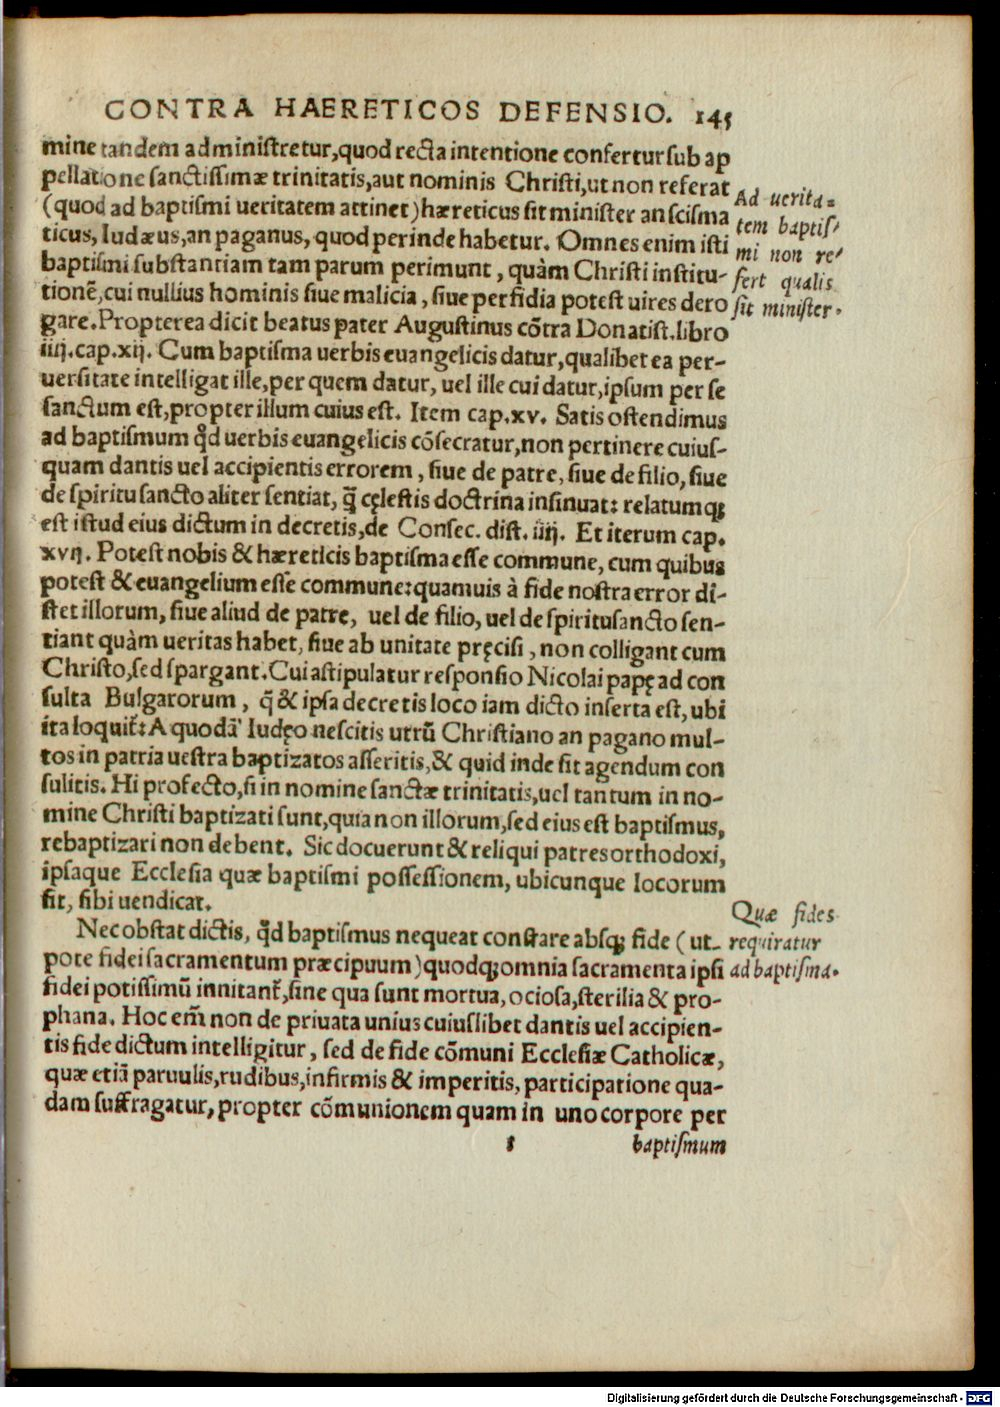 CONTRA HAERETICOS DEFENSIO. 145
mine tandem administretur,quod recta intentione confertur sub ap
pellatione sanctissimæ trinitatis,aut nominis Christi,ut non referat
(quod ad baptismi ueritatem attinet)hæreticus sit minister an scisma
ticus, Iudæus,an paganus, quod perinde habetur. Omnes enim isti
baptismi substantiam tam parum perimunt, quàm Christi institu-
tionē,cui nullius hominis siue malicia, siue perfidia potest uires dero
gare.Propterea dicit beatus pater Augustinus cōtra Donatist.libro
iiij.cap.xij. Cum baptisma uerbis euangelicis datur,qualibet ea per-
uersitate intelligat ille,per quem datur, uel ille cui datur,ipsum per se
sanctum est,propter illum cuius est. Item cap.xv. Satis ostendimus
ad baptismum qd̛ uerbis euangelicis cōsecratur,non pertinere cuius-
quam dantis uel accipientis errorem, siue de patre, siue de filio, siue
de spiritu sancto aliter sentiat, q̄ cęlestis doctrina insinuat: relatumq;
est istud eius dictum in decretis,de Consec. dist. iiij. Et iterum cap.
xvij. Potest nobis & hæreticis baptisma esse commune, cum quibus
potest & euangelium esse commune:quamuis à fide nostra error di-
stet illorum, siue aliud de patre, uel de filio, uel de spiritusancto sen-
tiant quàm ueritas habet, siue ab unitate pręcisi, non colligant cum
Christo,sed spargant.Cui astipulatur responsio Nicolai papę ad con
sulta Bulgarorum, q̄ & ipsa decretis loco iam dicto inserta est, ubi
ita loquit̃: A quodā Iudęo nescitis utrū Christiano an pagano mul-
tos in patria uestra baptizatos asseritis,& quid inde sit agendum con
sulitis. Hi profecto,si in nomine sanctæ trinitatis,uel tantum in no-
mine Christi baptizati sunt,quia non illorum,sed eius est baptismus,
rebaptizari non debent. Sic docuerunt & reliqui patres orthodoxi,
ipsaque Ecclesia quæ baptismi possessionem, ubicunque locorum
sit, sibi uendicat.
Nec obstat dictis, qd̛ baptismus nequeat constare absq; fide (ut-
pote fidei sacramentum præcipuum)quodq;omnia sacramenta ipsi
fidei potissimū innitant̃,sine qua sunt mortua, ociosa,sterilia & pro-
phana. Hoc em̄ non de priuata unius cuiuslibet dantis uel accipien-
tis fide dictum intelligitur, sed de fide cōmuni Ecclesiæ Catholicæ,
quæ etiā paruulis,rudibus,infirmis & imperitis, participatione qua-
dam suffragatur, propter cōmunionem quam in uno corpore per
s baptismum
Ad uerita=
tem baptis-
mi non re-
fert qualis
sit minister.
Quæ fides
requiratur
ad baptisma.
Digitalisierung gefördert durch die Deutsche Forschungsgemeinschaft - DFG